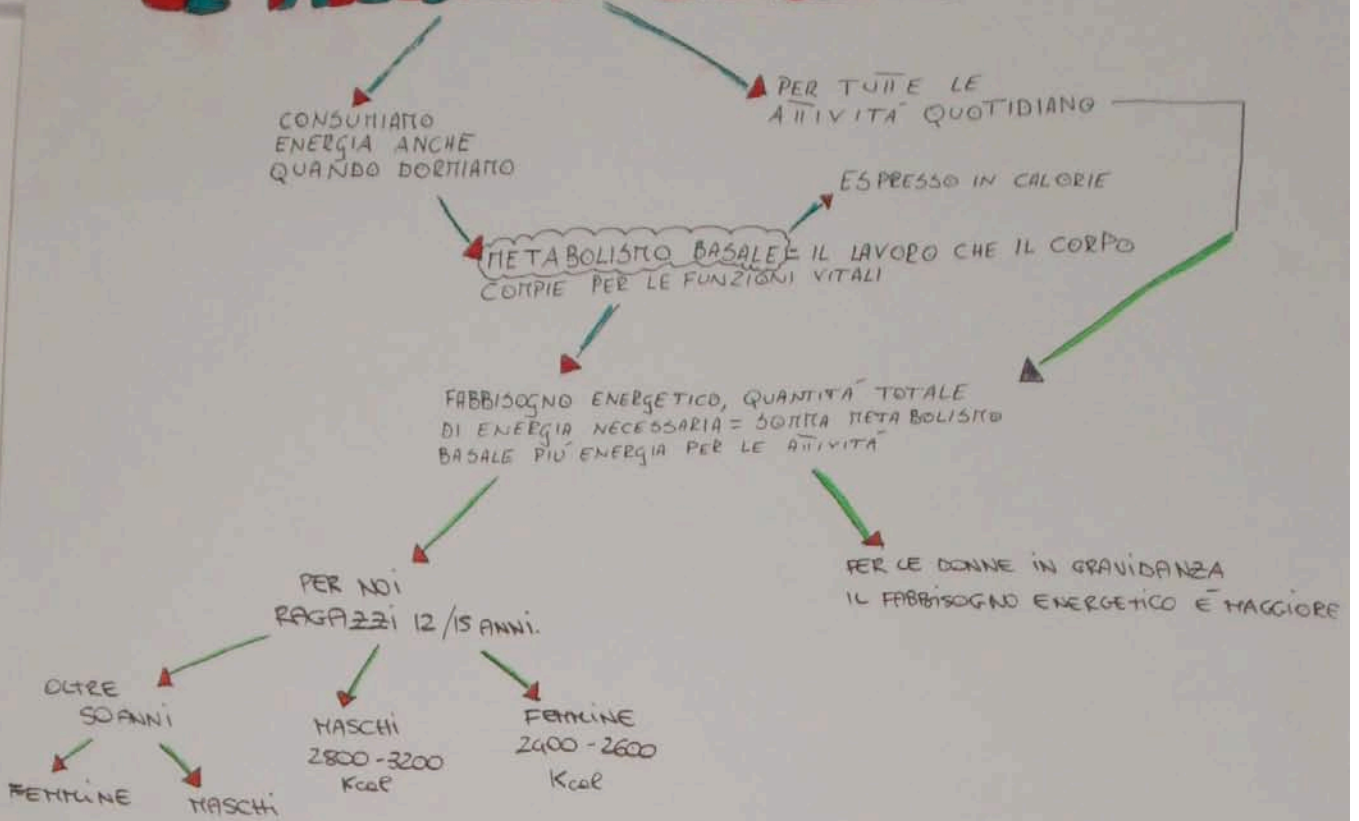 CONSUMIAMO
ENERGIA ANCHE
QUANDO DORMIAMO
PER TUTTE LE
ATTIVITÀ QUOTIDIANO
ESPRESSO IN CALORIE
METABOLISMO BASALE = IL LAVORO CHE IL CORPO
COMPIE PER LE FUNZIONI VITALI
FABBISOGNO ENERGETICO, QUANTITÀ TOTALE
DI ENERGIA NECESSARIA = SOMMA METABOLISMO
BASALE PIÙ ENERGIA PER LE ATTIVITÀ
PER NOI
RAGAZZI 12/15 ANNI.
PER LE DONNE IN GRAVIDANZA
IL FABBISOGNO ENERGETICO È MAGGIORE
OLTRE
50 ANNI
MASCHI
2800-3200
Kcal
FEMMINE
2400-2600
Kcal
FEMMINE
MASCHI